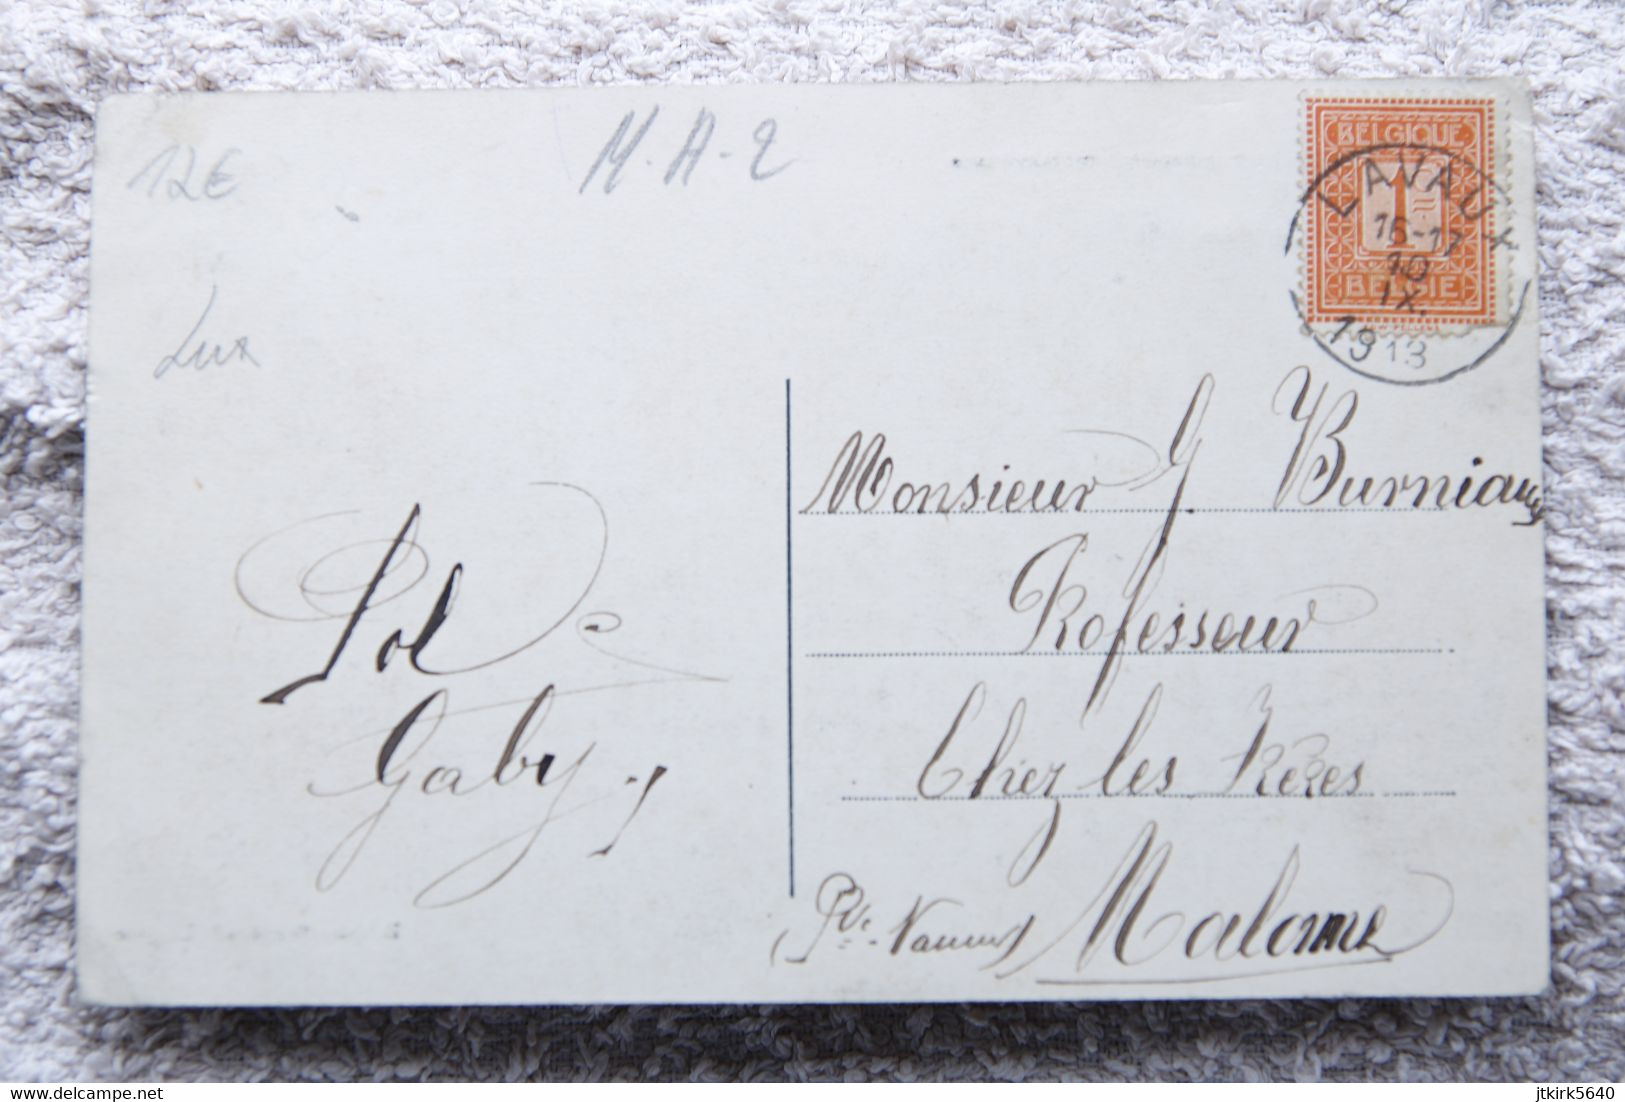 12€
M.A-2
Lux
BELGIQUE
1
BELGIË
LAVAUX
16-17
10
IX.
1913
Monsieur J Burniaux
Professeur
Chez les Frères
(Pce. Namur) Malonne
Pol
Gaby
delcampe.net
jtkirk5640